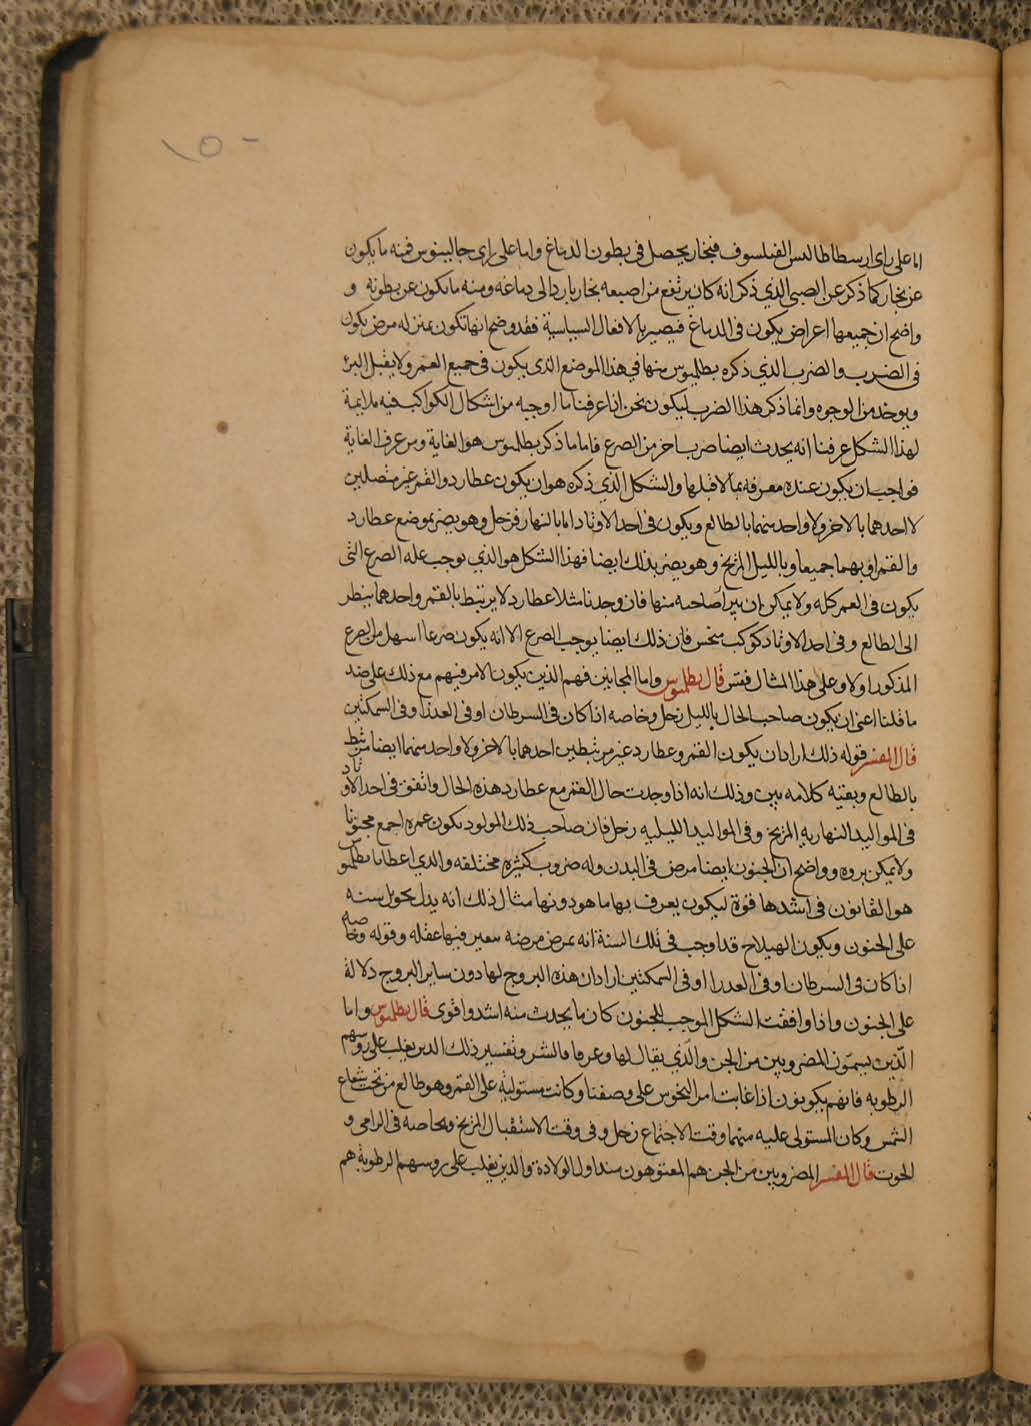 ١٥٠
اما على راى ارسطاطاليس الفيلسوف فبخار يحصل فى بطون الدماغ واما على راى جالينوس فمنه ما يكون
عن بخار كما ذكر عن الصبى الذي ذكر انه كان يرتفع من اصبعه بخار بارد الى دماغه ومنه ما يكون عن بطونه و
واضح ان جميعها اعراض يكون فى الدماغ فيصير بالافعال السياسية فقد وضح انها تكون بمنزله مرض يكون
فى الضرب والضرب الذي ذكره بطلميوس منها فى هذا الموضع الذى يكون فى جميع العمر ولا يقبل البرؤ
ويوخد من الوجوه وانما ذكر هذا الضرب ليكون نحن اذا عرفنا ما اوجبه من اشكال الكواكب فيه ملايمة
لهذا الشكل عرفنا انه يحدث ايضا ضرب اخر من الصرع فاما ما ذكر بطلميوس هو الغاية ومن عرف الغاية
فواجب ان يكون عنده معرفه بما لا قبلها والشكل الذي ذكره هو ان يكون عطارد والقمر غير متصلين
لا احدهما بالاخر ولا واحد منهما بالطالع ويكون فى احد الاوتاد اما بالنهار فزحل وهو يضر بموضع عطارد
والقمر او بهما جميعا وبالليل المريخ وهو يضر بذلك ايضا فهذا الشكل هو الذي يوجب عله الصرع التى
يكون فى العمر كله ولا يمكن ان يبرا صاحبه منها فان وجدنا مثلا عطارد لا يرتبط بالقمر واحدهما ينظر
الى الطالع وفى احد الاوتاد كوكب منحس فان ذلك ايضا يوجب الصرع الا انه يكون صرعا اسهل من الصرع
المذكور اولا وعلى هذا المثال فقس قال بطلميوس واما المجانين فهم الذين يكون الامر فيهم مع ذلك على ضد
ما قلنا اعنى ان يكون صاحب الحال بالليل زحل وخاصه اذا كان فى السرطان او فى العذرا وفى السمكتين
قال المفسر قوله ذلك اراد ان يكون القمر وعطارد غير مرتبطين احدهما بالاخر ولا واحد منهما ايضا مرتبط
بالطالع وبقيه كلامه بين وذلك انه اذا وجدت حال القمر مع عطارد هذه الحال واتفق فى احد الاوتاد
فى المواليد النهاريه المريخ وفى المواليد الليليه زحل فان صاحب ذلك المولود يكون عمره اجمع مجنونا
ولا يمكن بروه وواضح ان الجنون ايضا مرض فى البدن وله ضروب كثيره مختلفه والذي اعطانا بطلميوس
هو القانون فى اشدها قوة ليكون يعرف بها ما هو دونها مثال ذلك انه يدل تحويل سنه
على الجنون ويكون الهيلاج قد اوجب فى تلك السنة انه يمرض مرضه يتغير فيها عقله وقوله وخاصه
اذا كان فى السرطان او فى العدرا او فى السمكتين اراد ان هذه البروج لها دون ساير البروج دلالة
على الجنون واذا وافقت الشكل الموجب للجنون كان ما يحدث منه اشد واقوى قال بطلميوس واما
الذين يسمون المضروبين من الجن والذي يقال لها وعرفا فالنشر وتفسير ذلك الدين يغلب على روسهم
الرطوبه فانهم يكونون اذا غابت امر النحوس على وصفنا وكانت مستوليه على القمر وهو طالع من تحت شعاع
الشمس وكان المستولى عليه منهما وقت الاجتماع زحل وفى وقت الاستقبال المريخ وبخاصه فى الرامى و
الحوت قال المفسر المضروبين من الجن هم المعتوهون منذ اول الولادة والذين يغلب على روسهم الرطوبة هم